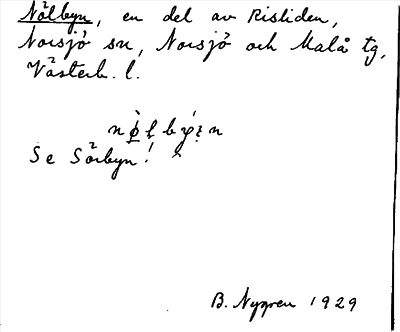 Nölbyn, en del av Ristiden,
Norsjö sn, Norsjö och Malå tg,
Västerb. l.
Se Sörbyn!
B. Nygren 1929